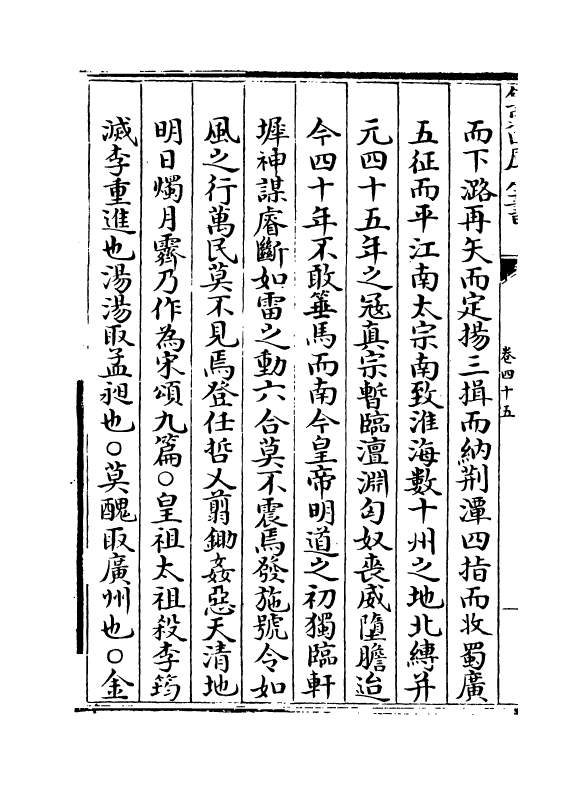 卷四十五
而下潞再矢而定揚三揖而納荆潭四指而收蜀廣
五征而平江南太宗南致淮海數十州之地北縛并
元四十五年之冦真宗暫臨澶淵匈奴喪威墮膽迨
今四十年不敢箠馬而南今皇帝明道之初獨臨軒
墀神謀睿斷如雷之動六合莫不震焉發施號令如
風之行萬民莫不見焉登任哲乂翦鋤姦惡天清地
明日燭月霽乃作為宋頌九篇○皇祖太祖殺李筠
滅李重進也湯湯取孟昶也○莫醜取廣州也○金